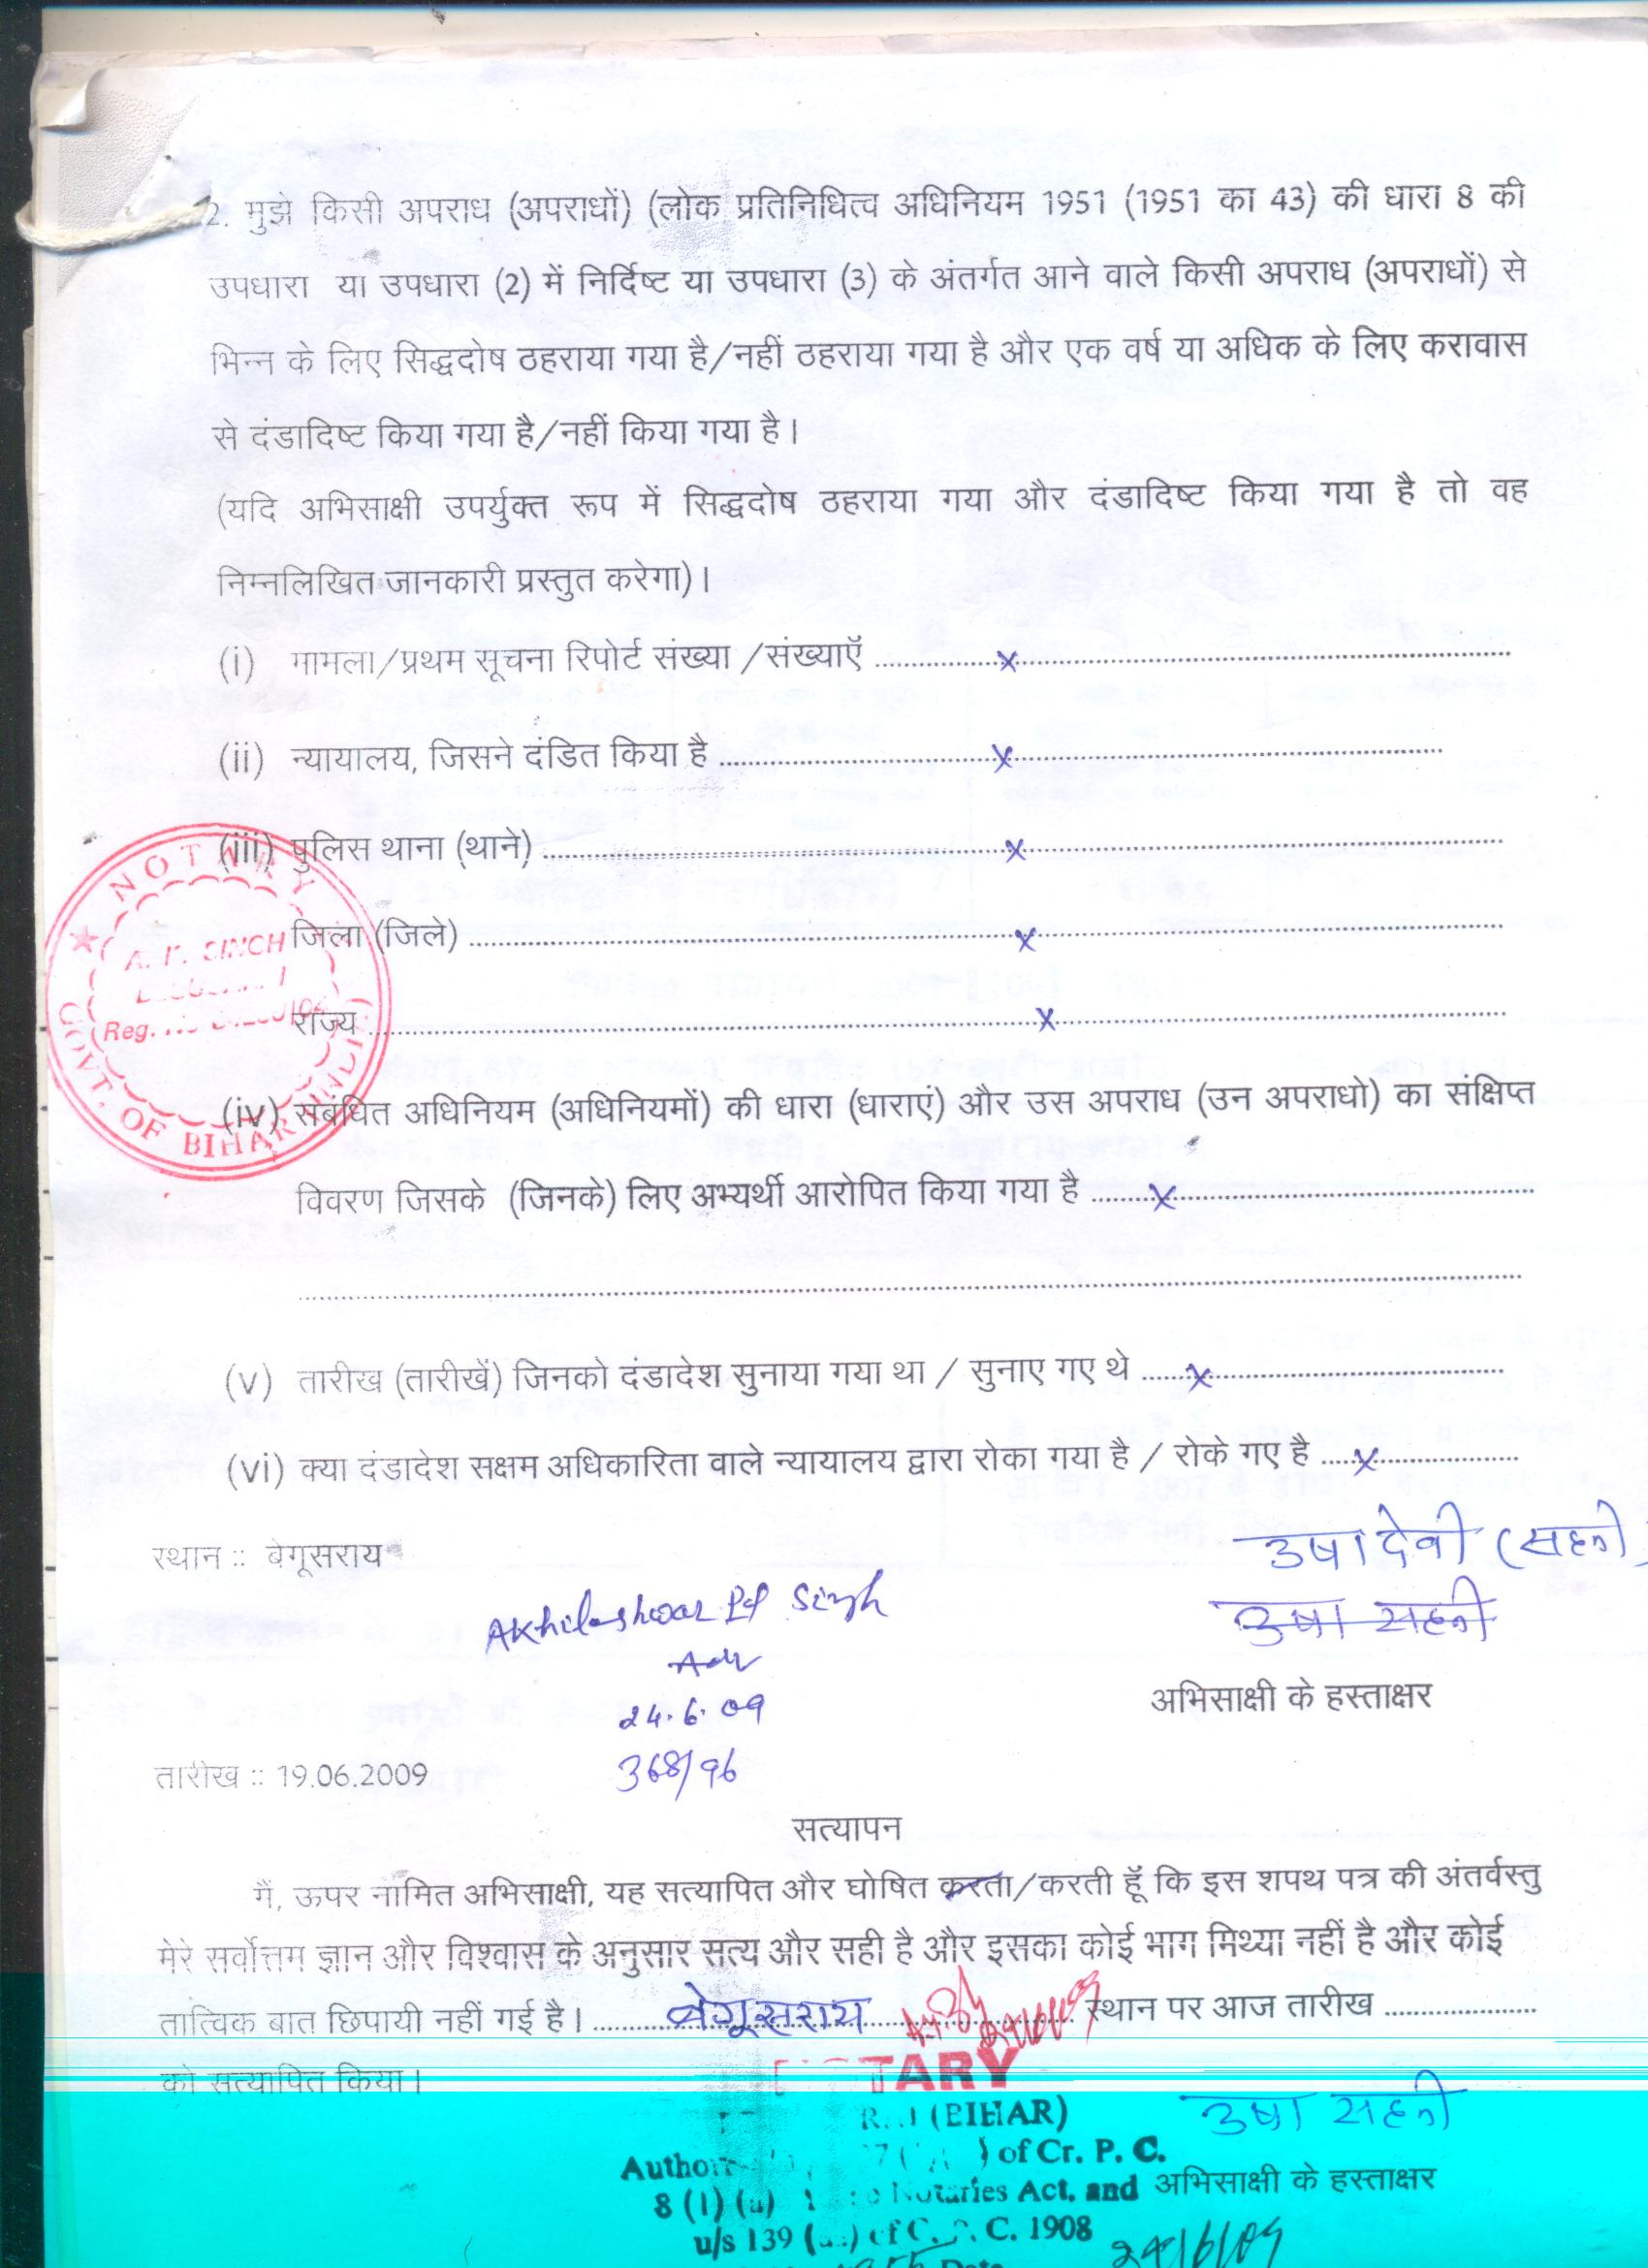 2. मुझे किसी अपराध (अपराधों) (लोक प्रतिनिधित्व अधिनियम 1951 (1951 का 43) की धारा 8 की
उपधारा या उपधारा (2) में निर्दिष्ट या उपधारा (3) के अंतर्गत आने वाले किसी अपराध (अपराधों) से
भिन्न के लिए सिद्धदोष ठहराया गया है/नहीं ठहराया गया है और एक वर्ष या अधिक के लिए करावास
से दंडादिष्ट किया गया है/नहीं किया गया है।
(यदि अभिसाक्षी उपर्युक्त रूप में सिद्धदोष ठहराया गया और दंडादिष्ट किया गया है तो वह
निम्नलिखित जानकारी प्रस्तुत करेगा)।
(i) मामला/प्रथम सूचना रिपोर्ट संख्या /संख्याएॅ ..........x..........
(ii) न्यायालय, जिसने दंडित किया है ..........x..........
(iii) पुलिस थाना (थाने) ..........x..........
NOTARY
जिला (जिले) ..........x..........
A. P. SINGH
राज्य ..........x..........
Reg. No
GOVT. OF BIHAR INDIA
(iv) संबंधित अधिनियम (अधिनियमों) की धारा (धाराएं) और उस अपराध (उन अपराधो) का संक्षिप्त
विवरण जिसके (जिनके) लिए अभ्यर्थी आरोपित किया गया है ..........x..........
(v) तारीख (तारीखें) जिनको दंडादेश सुनाया गया था / सुनाए गए थे ..........x..........
(vi) क्या दंडादेश सक्षम अधिकारिता वाले न्यायालय द्वारा रोका गया है / रोके गए है ..........x..........
उषा देवी (सहनी)
स्थान :: बेगूसराय
Akhileshwar Pd Singh
उषा सहनी
Adv
अभिसाक्षी के हस्ताक्षर
24.6.09
368/96
तारीख :: 19.06.2009
सत्यापन
मैं, ऊपर नामित अभिसाक्षी, यह सत्यापित और घोषित करता/करती हूॅ कि इस शपथ पत्र की अंतर्वस्तु
मेरे सर्वोत्तम ज्ञान और विश्वास के अनुसार सत्य और सही है और इसका कोई भाग मिथ्या नहीं है और कोई
तात्विक बात छिपायी नहीं गई है। ..........बेगूसराय.......... स्थान पर आज तारीख ..........
को सत्यापित किया।
TARY
(BIHAR)
उषा सहनी
of Cr. P. C.
8 (1) (a) Notaries Act, and
अभिसाक्षी के हस्ताक्षर
u/s 139 of C. P. C. 1908
24/6/09
Date